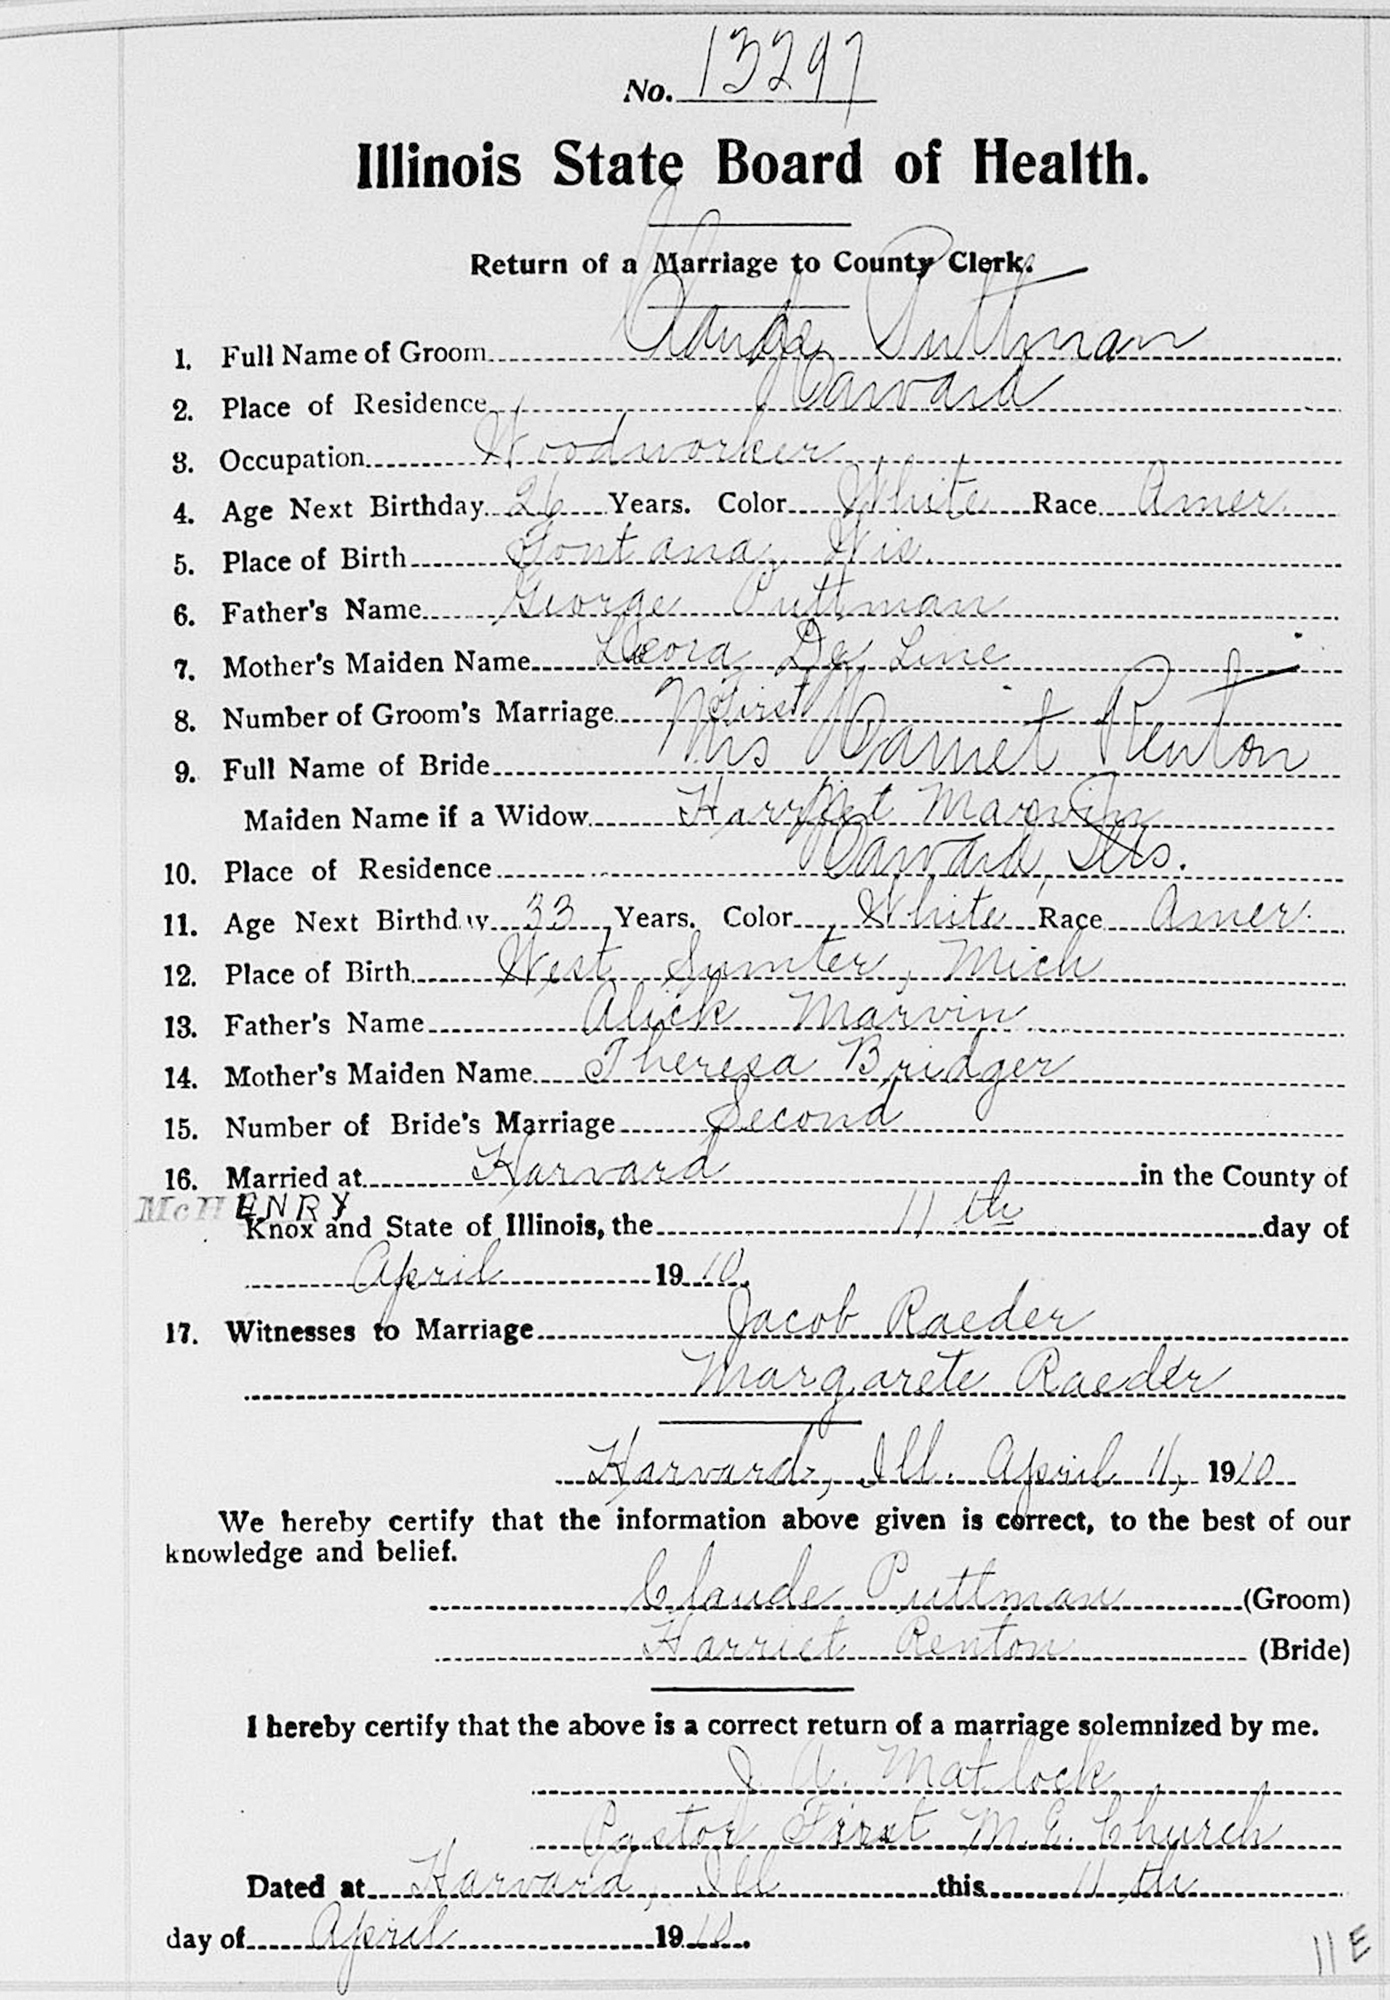 No. 13297
Illinois State Board of Health.
Return of a Marriage to County Clerk.
1. Full Name of Groom Claude Puttman
2. Place of Residence Harvard
3. Occupation Woodworker
4. Age Next Birthday 26 Years. Color White Race Amer.
5. Place of Birth Fontana, Wis.
6. Father's Name George Puttman
7. Mother's Maiden Name Leora De Line
8. Number of Groom's Marriage First
9. Full Name of Bride Mrs Harriet Renton
Maiden Name if a Widow Harriet Marvin
10. Place of Residence Harvard, Ills.
11. Age Next Birthday 33 Years. Color White Race Amer.
12. Place of Birth West Sumter, Mich
13. Father's Name Alick Marvin
14. Mother's Maiden Name Theresa Bridger
15. Number of Bride's Marriage Second
16. Married at Harvard in the County of
McHENRY
Knox and State of Illinois, the 11th day of
April 1910.
17. Witnesses to Marriage Jacob Raeder
Margarete Raeder
Harvard, Ill. April 11, 1910
We hereby certify that the information above given is correct, to the best of our
knowledge and belief.
Claude Puttman (Groom)
Harriet Renton (Bride)
I hereby certify that the above is a correct return of a marriage solemnized by me.
J. A. Matlock
Pastor First M. E. Church
Dated at Harvard, Ill this 11th
day of April 1910.
11E